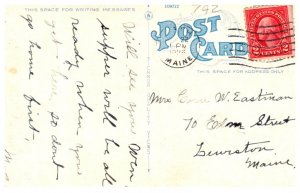 THIS SPACE FOR WRITING MESSAGES
Will see you Mon.
supper will be all
ready when you
get so dont
go home first.
109872
792
POST
CARD
MAINE
THIS SPACE FOR ADDRESS ONLY
Mrs W. Eastman
70 Elm Street
Lewiston
Maine.